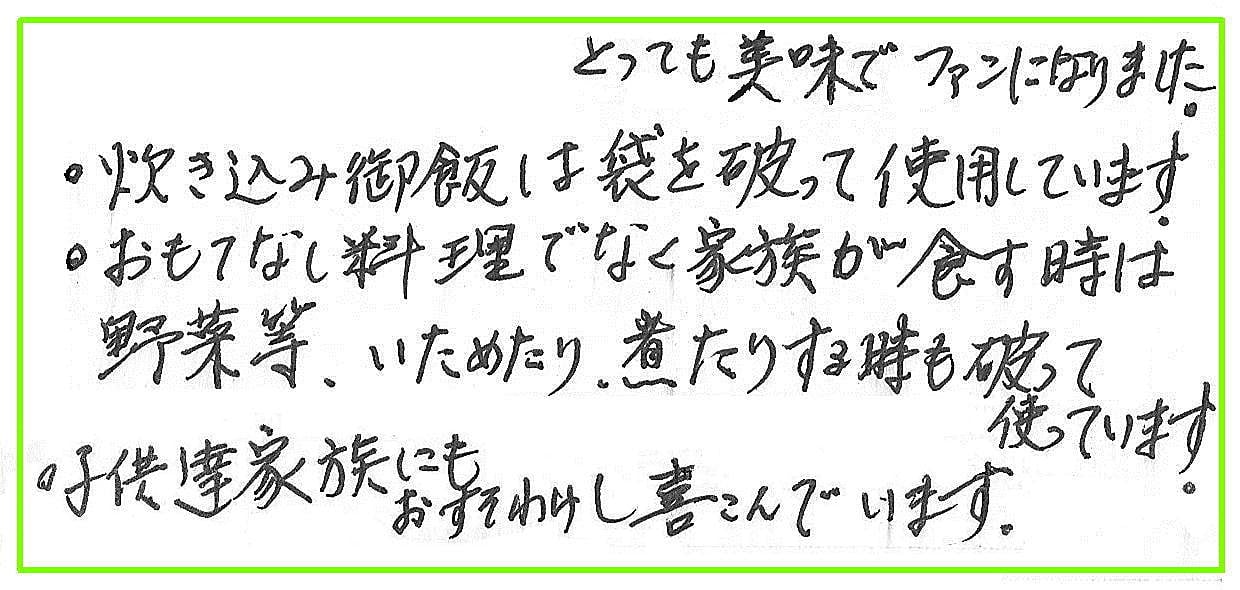 とっても美味でファンになりました。
・炊き込み御飯は袋を破って使用しています。
・おもてなし料理でなく家族が食す時は
野菜等、いためたり、煮たりする時も破って
使っています。
・子供達家族にも
おすそわけし喜こんでいます。